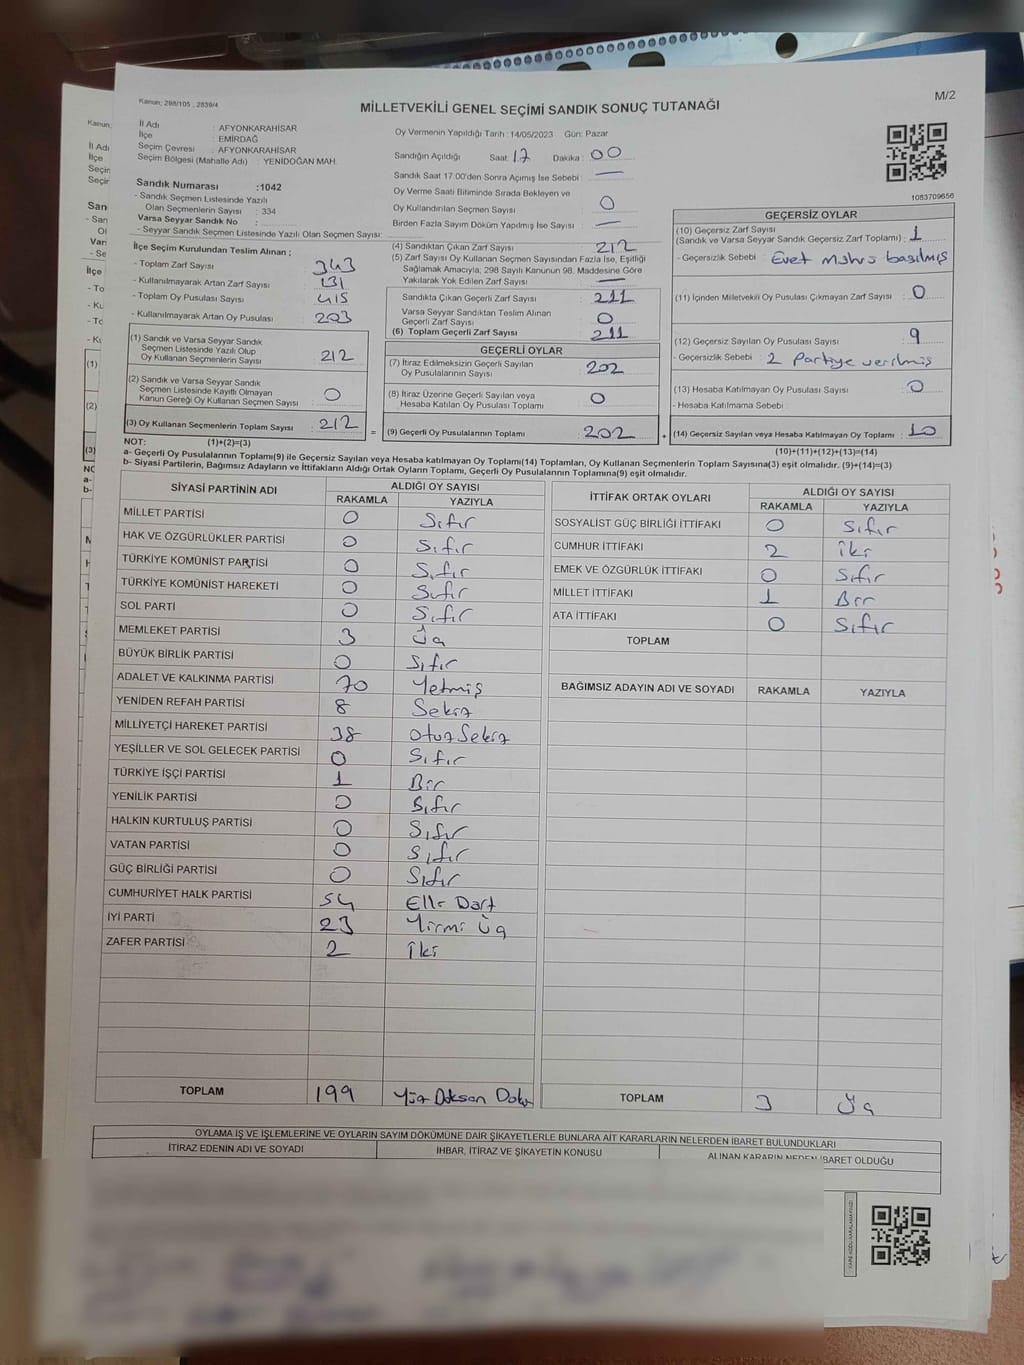 Kanun; 298/105 , 2839/4
MİLLETVEKİLİ GENEL SEÇİMİ SANDIK SONUÇ TUTANAĞI
M/2
İl Adı : AFYONKARAHİSAR
İlçe : EMİRDAĞ
Seçim Çevresi : AFYONKARAHİSAR
Seçim Bölgesi (Mahalle Adı) : YENİDOĞAN MAH.
Sandık Numarası :1042
- Sandık Seçmen Listesinde Yazılı
Olan Seçmenlerin Sayısı : 334
Varsa Seyyar Sandık No :
- Seyyar Sandık Seçmen Listesinde Yazılı Olan Seçmen Sayısı:
Oy Vermenin Yapıldığı Tarih : 14/05/2023 Gün: Pazar
Sandığın Açıldığı Saat: 17 Dakika : 00
Sandık Saat 17.00'den Sonra Açımış İse Sebebi : —
Oy Verme Saati Bitiminde Sırada Bekleyen ve
Oy Kullandırılan Seçmen Sayısı : 0
Birden Fazla Sayım Döküm Yapılmış İse Sayısı : —
1083709656
İlçe Seçim Kurulundan Teslim Alınan ;
- Toplam Zarf Sayısı : 343
- Kullanılmayarak Artan Zarf Sayısı : 131
- Toplam Oy Pusulası Sayısı : 415
- Kullanılmayarak Artan Oy Pusulası : 203
(1) Sandık ve Varsa Seyyar Sandık
Seçmen Listesinde Yazılı Olup
Oy Kullanan Seçmenlerin Sayısı : 212
(2) Sandık ve Varsa Seyyar Sandık
Seçmen Listesinde Kayıtlı Olmayan
Kanun Gereği Oy Kullanan Seçmen Sayısı : 0
(3) Oy Kullanan Seçmenlerin Toplam Sayısı : 212
(4) Sandıktan Çıkan Zarf Sayısı : 212
(5) Zarf Sayısı Oy Kullanan Seçmen Sayısından Fazla İse, Eşitliği
Sağlamak Amacıyla, 298 Sayılı Kanunun 98. Maddesine Göre
Yakılarak Yok Edilen Zarf Sayısı : —
Sandıkta Çıkan Geçerli Zarf Sayısı : 211
Varsa Seyyar Sandıktan Teslim Alınan
Geçerli Zarf Sayısı : 0
(6) Toplam Geçerli Zarf Sayısı : 211
GEÇERLİ OYLAR
(7) İtiraz Edilmeksizin Geçerli Sayılan
Oy Pusulalarının Sayısı : 202
(8) İtiraz Üzerine Geçerli Sayılan veya
Hesaba Katılan Oy Pusulası Toplamı : 0
= (9) Geçerli Oy Pusulalarının Toplamı : 202
GEÇERSİZ OYLAR
(10) Geçersiz Zarf Sayısı
(Sandık ve Varsa Seyyar Sandık Geçersiz Zarf Toplamı) : 1
- Geçersizlik Sebebi : Evet Mührü basılmış
(11) İçinden Milletvekili Oy Pusulası Çıkmayan Zarf Sayısı : 0
(12) Geçersiz Sayılan Oy Pusulası Sayısı : 9
- Geçersizlik Sebebi : 2 Partiye verilmiş
(13) Hesaba Katılmayan Oy Pusulası Sayısı : 0
- Hesaba Katılmama Sebebi :
+ (14) Geçersiz Sayılan veya Hesaba Katılmayan Oy Toplamı : 10
NOT: (1)+(2)=(3) (10)+(11)+(12)+(13)=(14)
a- Geçerli Oy Pusulalarının Toplamı(9) ile Geçersiz Sayılan veya Hesaba katılmayan Oy Toplamı(14) Toplamları, Oy Kullanan Seçmenlerin Toplam Sayısına(3) eşit olmalıdır. (9)+(14)=(3)
b- Siyasi Partilerin, Bağımsız Adayların ve İttifakların Aldığı Ortak Oyların Toplamı, Geçerli Oy Pusulalarının Toplamına(9) eşit olmalıdır.
SİYASİ PARTİNİN ADI ALDIĞI OY SAYISI
RAKAMLA YAZIYLA
MİLLET PARTİSİ 0 Sıfır
HAK VE ÖZGÜRLÜKLER PARTİSİ 0 Sıfır
TÜRKİYE KOMÜNİST PARTİSİ 0 Sıfır
TÜRKİYE KOMÜNİST HAREKETİ 0 Sıfır
SOL PARTİ 0 Sıfır
MEMLEKET PARTİSİ 3 Üç
BÜYÜK BİRLİK PARTİSİ 0 Sıfır
ADALET VE KALKINMA PARTİSİ 70 Yetmiş
YENİDEN REFAH PARTİSİ 8 Sekiz
MİLLİYETÇİ HAREKET PARTİSİ 38 Otuz Sekiz
YEŞİLLER VE SOL GELECEK PARTİSİ 0 Sıfır
TÜRKİYE İŞÇİ PARTİSİ 1 Bir
YENİLİK PARTİSİ 0 Sıfır
HALKIN KURTULUŞ PARTİSİ 0 Sıfır
VATAN PARTİSİ 0 Sıfır
GÜÇ BİRLİĞİ PARTİSİ 0 Sıfır
CUMHURİYET HALK PARTİSİ 54 Elli Dört
İYİ PARTİ 23 Yirmi Üç
ZAFER PARTİSİ 2 İki
TOPLAM 199 Yüz Doksan Doku
İTTİFAK ORTAK OYLARI ALDIĞI OY SAYISI
RAKAMLA YAZIYLA
SOSYALİST GÜÇ BİRLİĞİ İTTİFAKI 0 Sıfır
CUMHUR İTTİFAKI 2 İki
EMEK VE ÖZGÜRLÜK İTTİFAKI 0 Sıfır
MİLLET İTTİFAKI 1 Bir
ATA İTTİFAKI 0 Sıfır
TOPLAM
BAĞIMSIZ ADAYIN ADI VE SOYADI RAKAMLA YAZIYLA
TOPLAM 3 Üç
OYLAMA İŞ VE İŞLEMLERİNE VE OYLARIN SAYIM DÖKÜMÜNE DAİR ŞİKAYETLERLE BUNLARA AİT KARARLARIN NELERDEN İBARET BULUNDUKLARI
İTİRAZ EDENİN ADI VE SOYADI İHBAR, İTİRAZ VE ŞİKAYETİN KONUSU ALINAN KARARIN NEDEN İBARET OLDUĞU